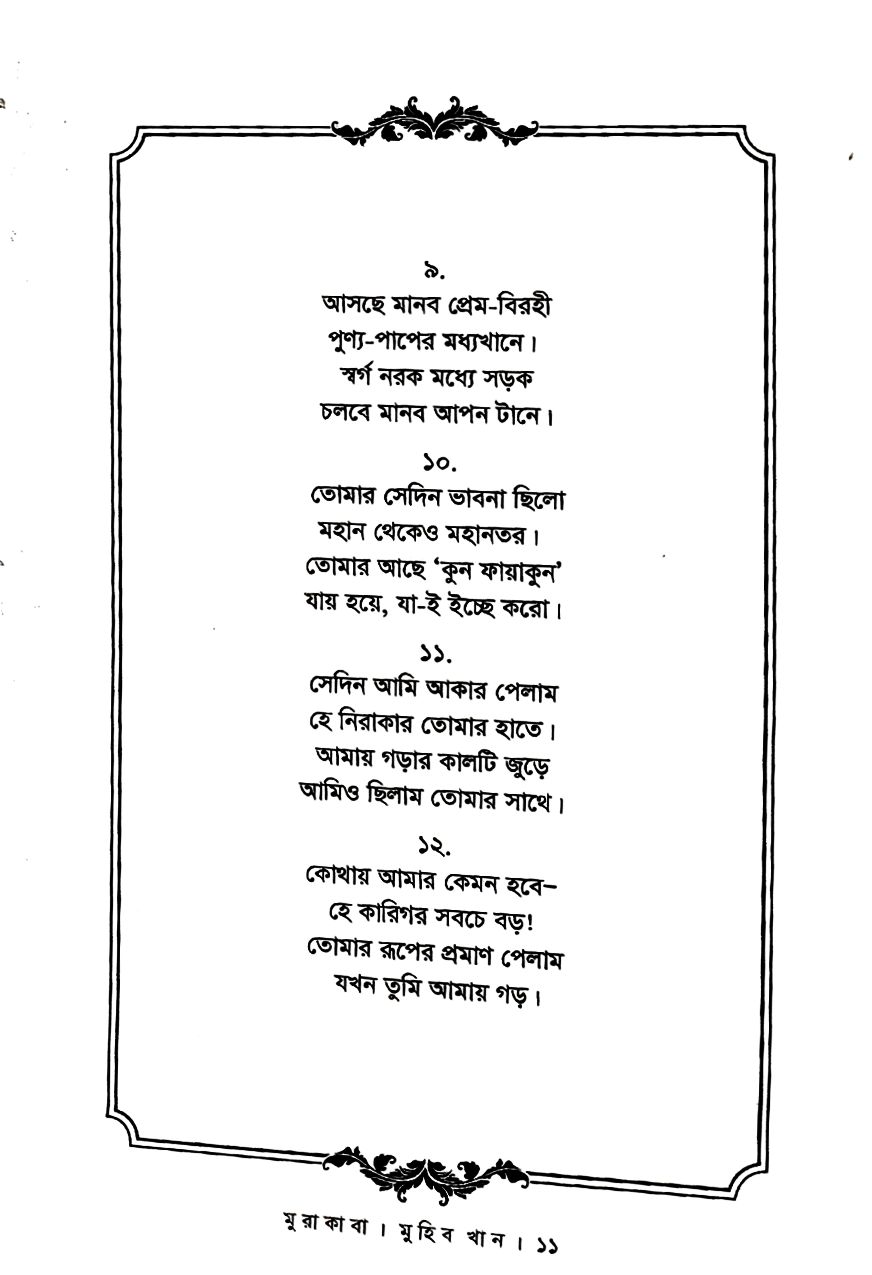 ৯.
আসছে মানব প্রেম-বিরহী
পুণ্য-পাপের মধ্যখানে।
স্বর্গ নরক মধ্যে সড়ক
চলবে মানব আপন টানে।
১০.
তোমার সেদিন ভাবনা ছিলো
মহান থেকেও মহানতর।
তোমার আছে ‘কুন ফায়াকুন’
যায় হয়ে, যা-ই ইচ্ছে করো।
১১.
সেদিন আমি আকার পেলাম
হে নিরাকার তোমার হাতে।
আমায় গড়ার কালটি জুড়ে
আমিও ছিলাম তোমার সাথে।
১২.
কোথায় আমার কেমন হবে–
হে কারিগর সবচে বড়!
তোমার রূপের প্রমাণ পেলাম
যখন তুমি আমায় গড়।
মুরাকাবা। মুহিব খান। ১১